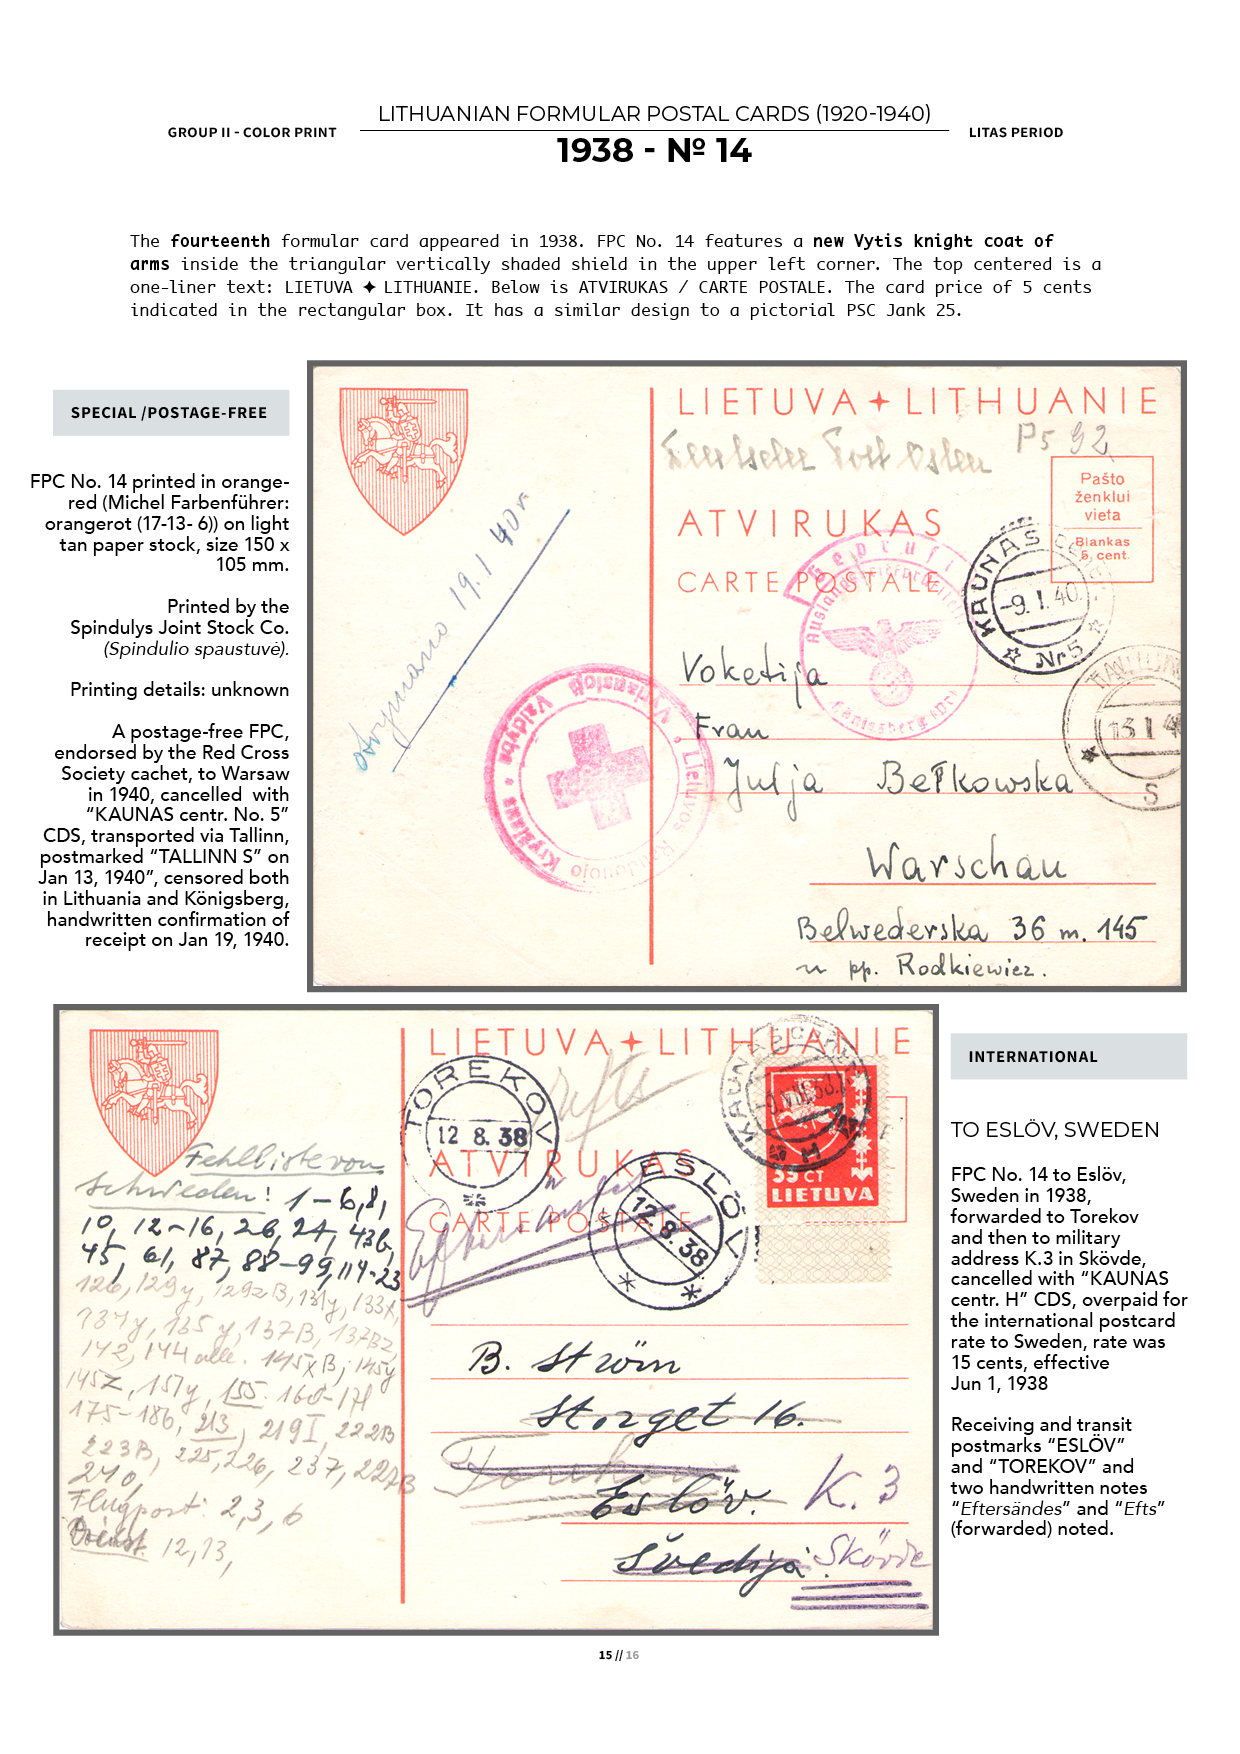 LITHUANIAN FORMULAR POSTAL CARDS (1920-1940)
GROUP II - COLOR PRINT
LITAS PERIOD
1938 - № 14
The fourteenth formular card appeared in 1938. FPC No. 14 features a new Vytis knight coat of
arms inside the triangular vertically shaded shield in the upper left corner. The top centered is a
one-liner text: LIETUVA ✦ LITHUANIE. Below is ATVIRUKAS / CARTE POSTALE. The card price of 5 cents
indicated in the rectangular box. It has a similar design to a pictorial PSC Jank 25.
SPECIAL /POSTAGE-FREE
FPC No. 14 printed in orange-
red (Michel Farbenführer:
orangerot (17-13- 6)) on light
tan paper stock, size 150 x
105 mm.
Printed by the
Spindulys Joint Stock Co.
(Spindulio spaustuvė).
Printing details: unknown
A postage-free FPC,
endorsed by the Red Cross
Society cachet, to Warsaw
in 1940, cancelled with
“KAUNAS centr. No. 5”
CDS, transported via Tallinn,
postmarked “TALLINN S” on
Jan 13, 1940”, censored both
in Lithuania and Königsberg,
handwritten confirmation of
receipt on Jan 19, 1940.
LIETUVA ✦ LITHUANIE
Deutscher Post Osten
Pašto
ženklui
vieta
Blankas
5 cent.
ATVIRUKAS
CARTE POSTALE
Geprüft
KAUNAS
-9. I. 40.
Nr 5
13 I 4
S
otrzymano 19.I 40 r
Lietuvos Raudonojo Kryžiaus • Vyriausioji Valdyba •
Voketija
Frau
Julja Bełkowska
Warschau
Belwederska 36 m. 145
u pp. Rodkiewicz.
LIETUVA ✦ LITHUANIE
TOREKOV
12 8. 38
Efts
KAUNAS
H
35 CT
LIETUVA
ATVIRUKAS
CARTE POSTALE
ESLÖV
12. 8. 38
Fehlliste von
Schweden! 1-6, 8,
10, 12-16, 26, 27, 43b,
45, 61, 87, 88-99, 114-23
126, 129y, 129zB, 131y, 133x,
134y, 135y, 137B, 137Bz
142, 144 alle. 145xB, 145y
145Z, 151y, 155. 160-171
175-186, 213, 219I, 222B
223B, 225, 226, 237, 227B
240,
Flugpost: 2, 3, 6
Dienst. 12, 13,
B. Ström
Storget 16.
Torekov
Eslöv. K. 3
Švedija. Skövde
INTERNATIONAL
TO ESLÖV, SWEDEN
FPC No. 14 to Eslöv,
Sweden in 1938,
forwarded to Torekov
and then to military
address K.3 in Skövde,
cancelled with “KAUNAS
centr. H” CDS, overpaid for
the international postcard
rate to Sweden, rate was
15 cents, effective
Jun 1, 1938
Receiving and transit
postmarks “ESLÖV”
and “TOREKOV” and
two handwritten notes
“Eftersändes” and “Efts”
(forwarded) noted.
15 // 16